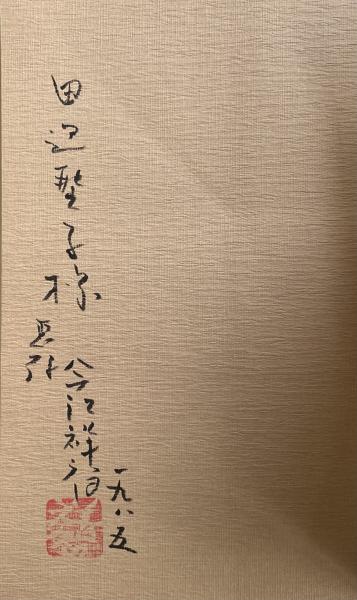 田辺聖子様
今江祥智
一九八五